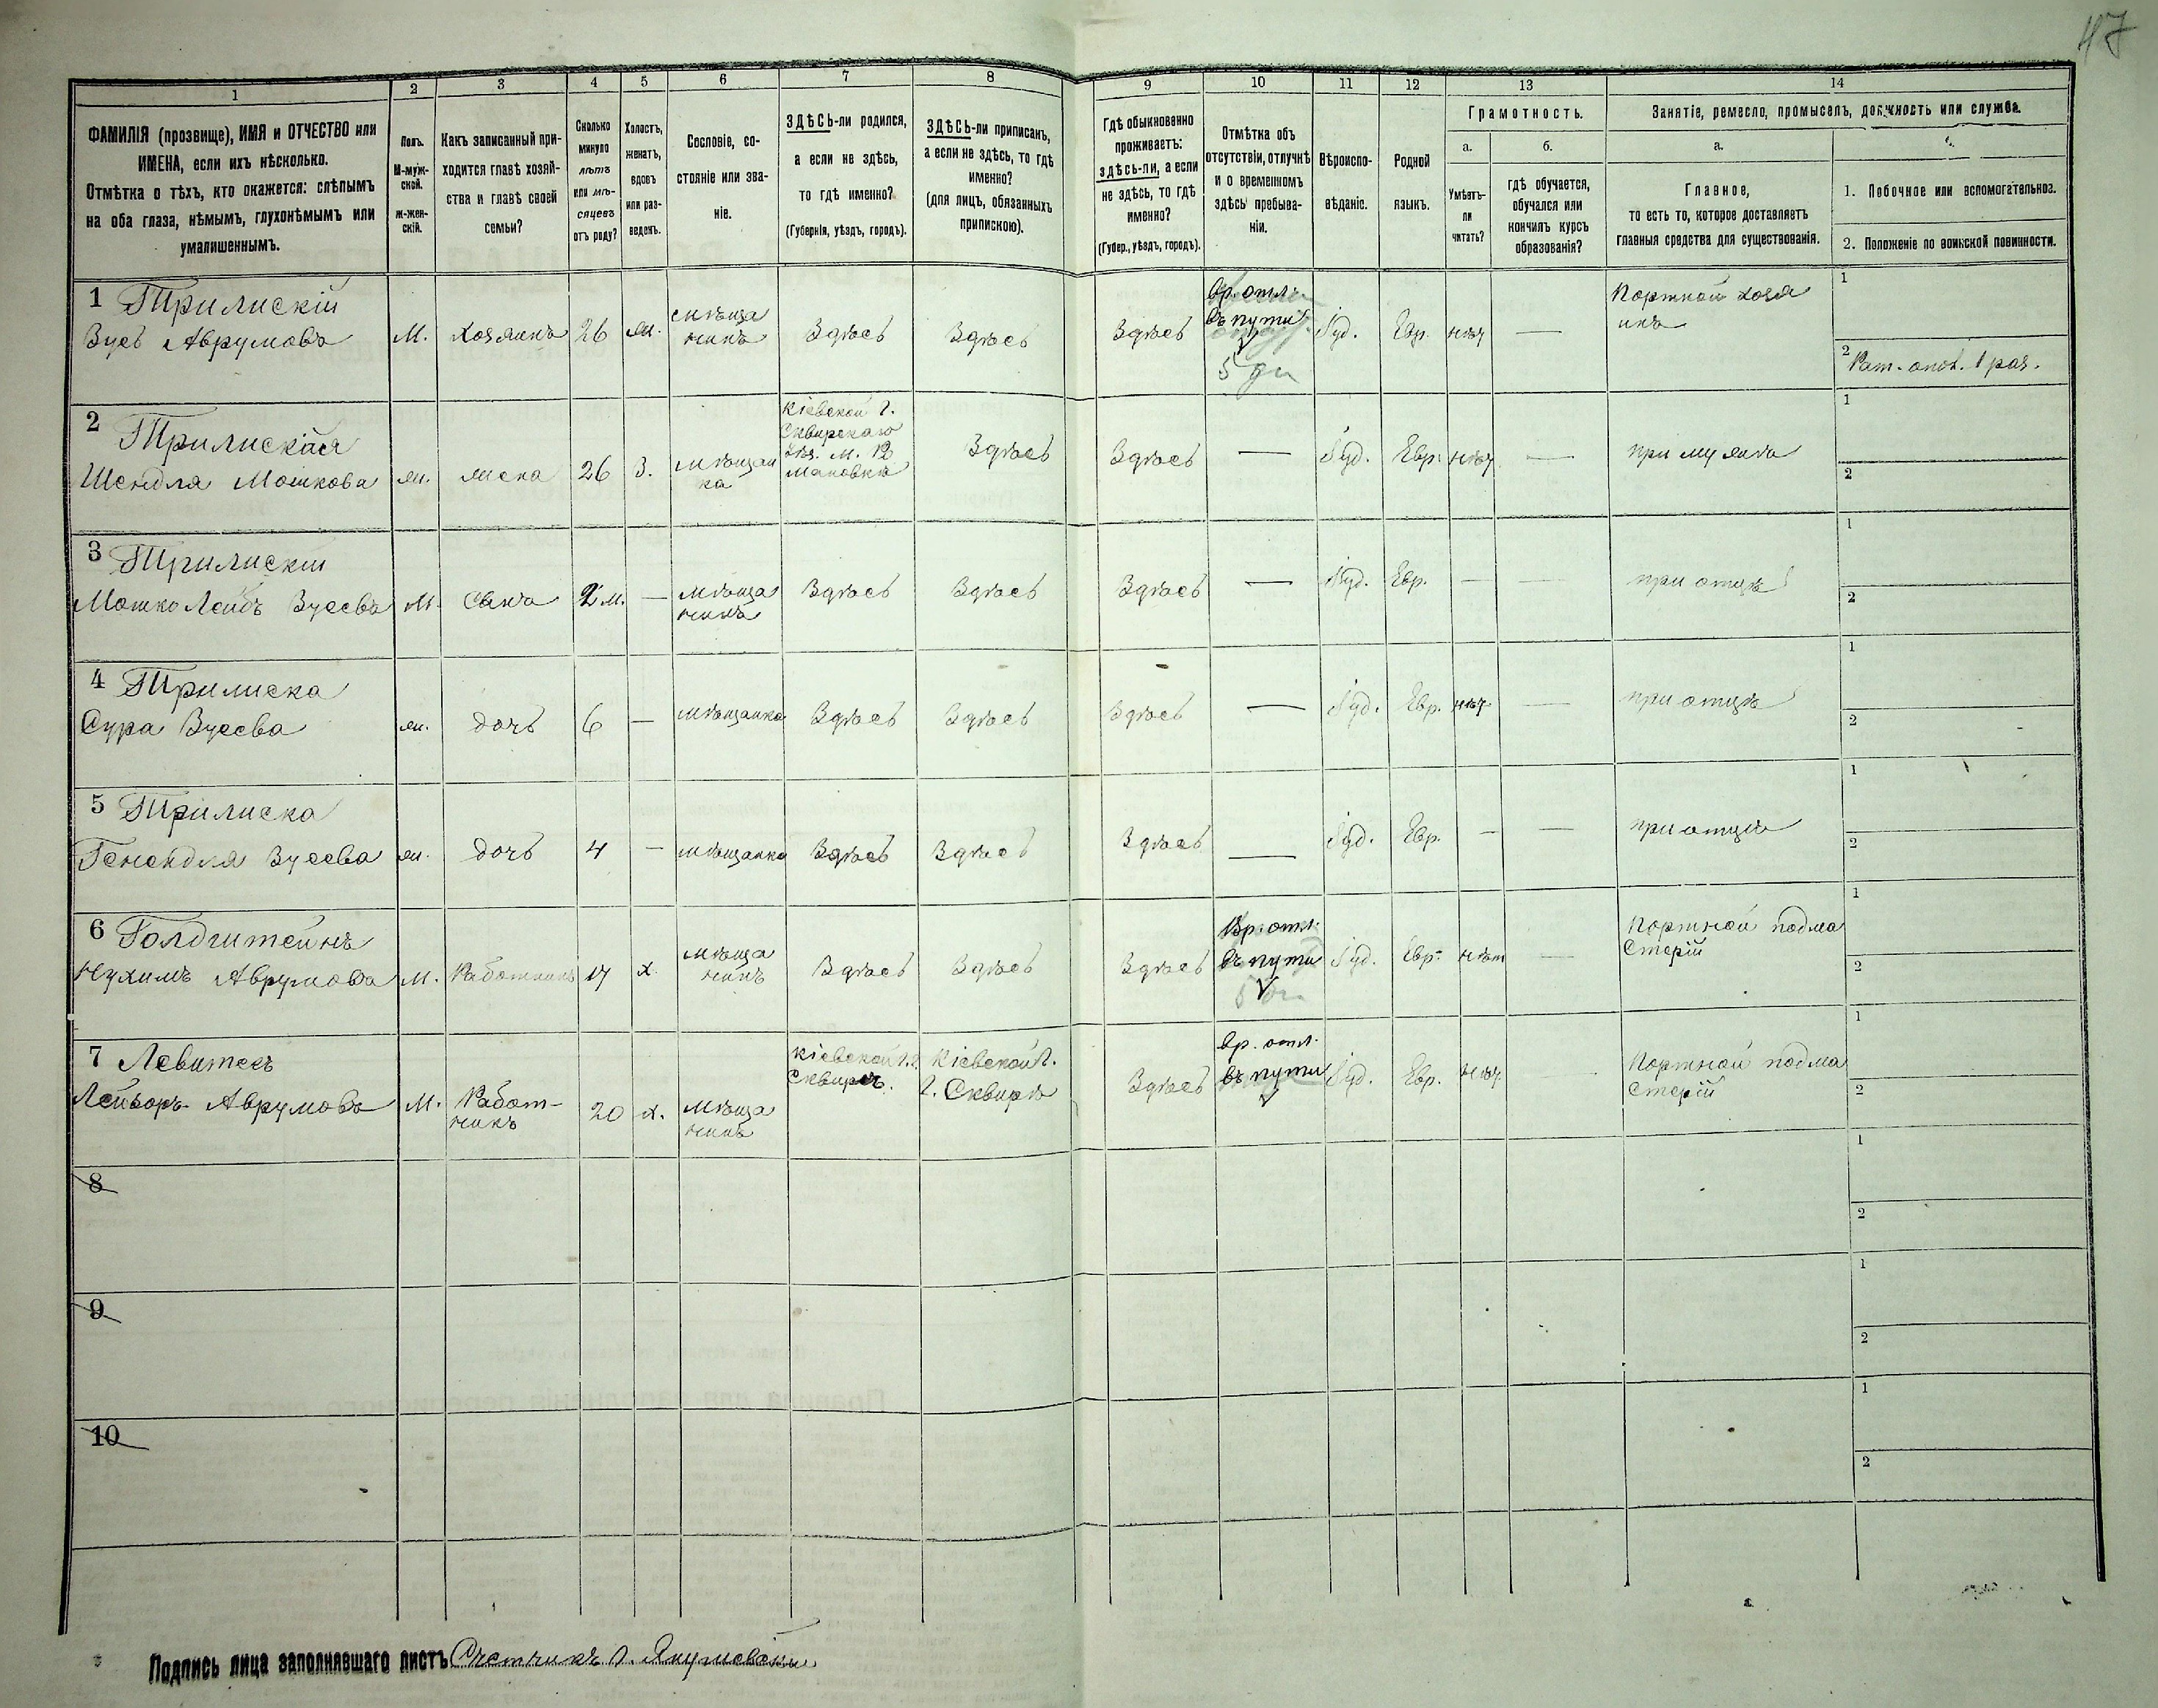 47
1 2 3 4 5 6 7 8 9 10 11 12 13 14
ФАМИЛІЯ (прозвище), ИМЯ и ОТЧЕСТВО или
ИМЕНА, если ихъ нѣсколько.
Отмѣтка о тѣхъ, кто окажется: слѣпымъ
на оба глаза, нѣмымъ, глухонѣмымъ или
умалишеннымъ.
Полъ.
М-муж-
ской.
ж-жен-
скій.
Какъ записанный при-
ходится главѣ хозяй-
ства и главѣ своей
семьи?
Сколько
минуло
лѣтъ
или мѣ-
сяцевъ
отъ роду?
Холостъ,
женатъ,
вдовъ
или раз-
веденъ.
Сословіе, со-
стояніе или зва-
ніе.
ЗДѢСЬ-ли родился,
а если не здѣсь,
то гдѣ именно?
(Губернія, уѣздъ, городъ).
ЗДѢСЬ-ли приписанъ,
а если не здѣсь, то гдѣ
именно?
(для лицъ, обязанныхъ
припискою).
Гдѣ обыкновенно
проживаетъ:
здѣсь-ли, а если
не здѣсь, то гдѣ
именно?
(Губер., уѣздъ, городъ).
Отмѣтка объ
отсутствіи, отлучкѣ
и о временномъ
здѣсь пребыва-
ніи.
Вѣроиспо-
вѣданіе.
Родной
языкъ.
Грамотность.
а.
Умѣетъ-
ли
читать?
б.
гдѣ обучается,
обучался или
кончилъ курсъ
образованія?
Занятіе, ремесло, промыселъ, должность или служба.
а.
Главное,
то есть то, которое доставляетъ
главныя средства для существованія.
1. Побочное или вспомогательное.
2. Положеніе по воинской повинности.
1 Трилискій
Зусь Аврумовъ
М.
Хозяинъ
26
ж.
мѣща
нинъ
Здѣсь
Здѣсь
Здѣсь
Вр. отл.
въ пути
5 дн
Іуд.
Евр.
нѣт
—
Портной хозя
инъ
1
2 Рат. опол. 1 раз.
2 Трилиская
Шендля Мошкова
ж.
жена
26
З.
мѣщан
ка
Кіевской г.
Сквирскаго
Здѣсь
Здѣсь
—
Іуд.
Евр.
нѣт
—
при мужѣ
1
2
3 Трилискій
Мошко Лейбъ Зусевъ
М.
Сынъ
2 м.
—
мѣща
нинъ
Здѣсь
Здѣсь
Здѣсь
—
Іуд.
Евр.
—
—
при отцѣ
1
2
4 Трилиска
Сура Зусева
ж.
дочь
6
—
мѣщанка
Здѣсь
Здѣсь
Здѣсь
—
Іуд.
Евр.
нѣт
—
при отцѣ
1
2
5 Трилиска
Генендля Зусева
ж.
дочь
4
—
мѣщанка
Здѣсь
Здѣсь
Здѣсь
—
Іуд.
Евр.
—
—
при отцѣ
1
2
6 Голдштейнъ
Нухимъ Аврумовъ
М.
Работникъ
17
х.
мѣща
нинъ
Здѣсь
Здѣсь
Здѣсь
Вр. отл.
въ пути
Іуд.
Евр.
нѣт
—
Портной подма
стерій
1
2
7 Левитесъ
Аврумовъ
М.
Работ-
никъ
20
х.
мѣща
нинъ
Кіевской г.
Сквирѣ.
Кіевской г.
г. Сквирѣ
Здѣсь
Вр. отл.
въ пути
Іуд.
Евр.
нѣт
—
Портной подма
стерій
1
2
8
1
2
9
1
2
10
1
2
Подпись лица заполнявшаго листъ Счетчикъ